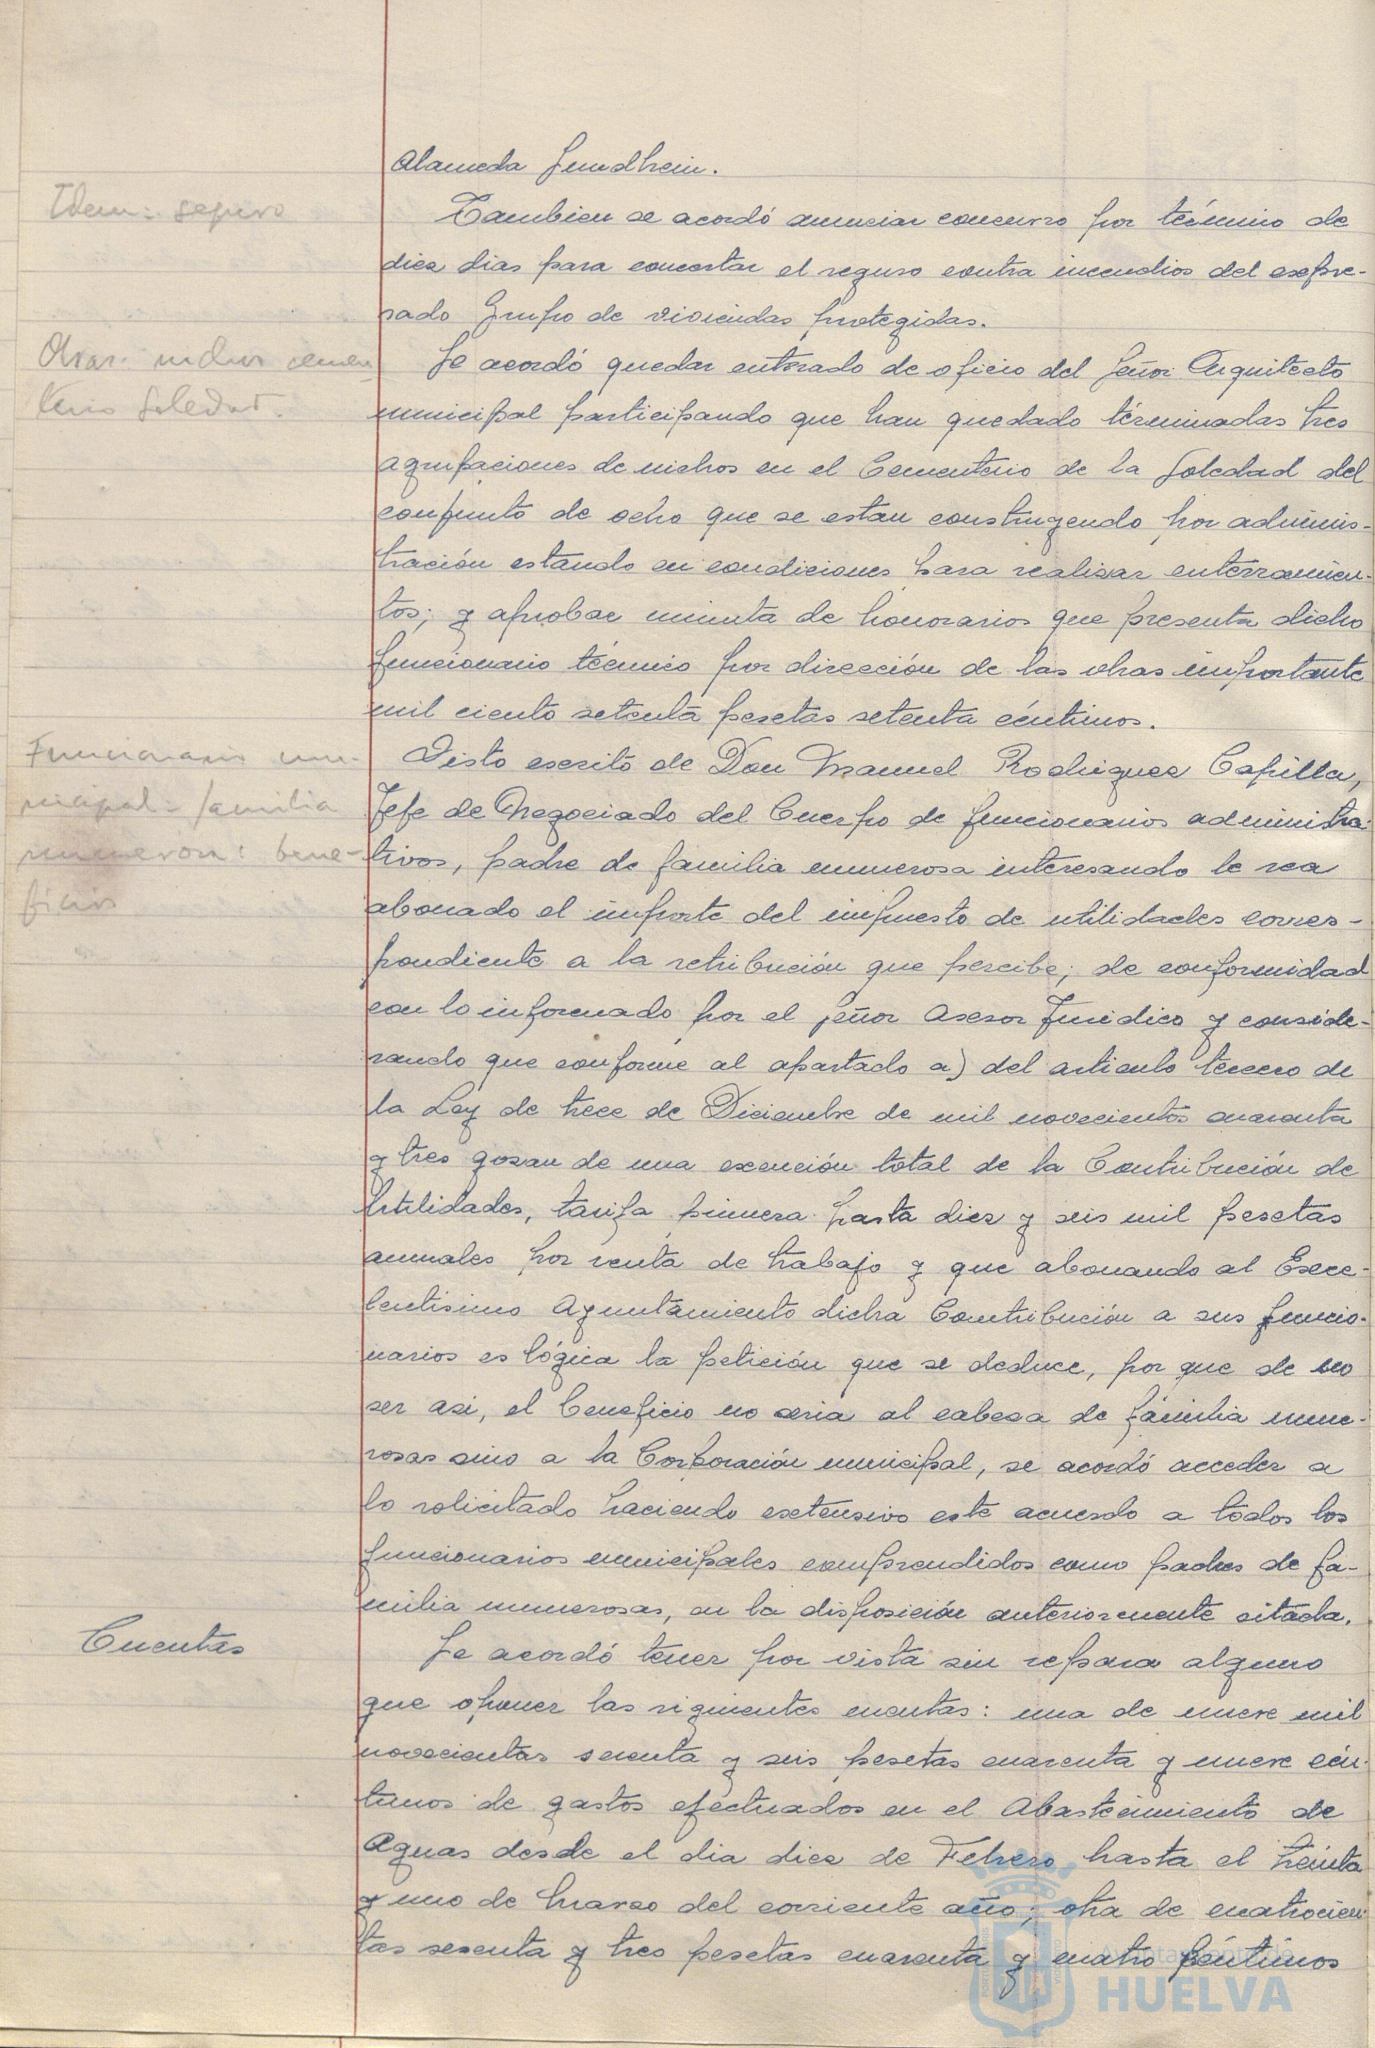 Alameda Sundhein.
Idem: seguro
Tambien se acordó anunciar concurso por término de
diez dias para concertar el seguro contra incendios del expre-
sado Grupo de viviendas protegidas.
Obras: nichos cemen-
terio Soledad.
Se acordó quedar enterado de oficio del Señor Arquitecto
municipal participando que han quedado términadas tres
agrupaciones de nichos en el Cementerio de la Soledad del
conjunto de ocho que se estan construyendo por adminis-
tración estando en condiciones para realizar enterramien-
tos; y aprobar minuta de honorarios que presenta dicho
funcionario técnico por dirección de las obras importante
mil ciento setenta pesetas setenta céntimos.
Funcionario mu-
nicipal: familia
numerosa: bene-
ficios
Visto escrito de Don Manuel Rodriguez Capilla,
Jefe de Negociado del Cuerpo de funcionarios administra-
tivos, padre de familia numerosa interesando le sea
abonado el importe del impuesto de utilidades corres-
pondiente a la retribución que percibe; de conformidad
con lo informado por el señor Asesor Juridico y conside-
rando que conforme al apartado a) del articulo tercero de
la Ley de trece de Diciembre de mil novecientos cuarenta
y tres gozan de una exención total de la Contribución de
Utilidades, tarifa primera hasta diez y seis mil pesetas
anuales por renta de trabajo y que abonando el Exce-
lentisimo Ayuntamiento dicha Contribución a sus funcio-
narios es lógica la petición que se deduce, por que de no
ser asi, el beneficio no seria al cabeza de familia nume-
rosas sino a la Corporación municipal, se acordó acceder a
lo solicitado haciendo extensivo este acuerdo a todos los
funcionarios municipales comprendidos como padres de fa-
milia numerosas, en la disposición anteriormente citada.
Cuentas
Se acordó tener por vista sin reparo alguno
que oponer las siguientes cuentas: una de nueve mil
novecientas sesenta y seis pesetas cuarenta y nueve cén-
timos de gastos efectuados en el Abastecimiento de
Aguas desde el dia diez de Febrero hasta el treinta
y uno de Marzo del corriente año; otra de cuatrocien-
tas sesenta y tres pesetas cuarenta y cuatro céntimos
Ayuntamiento de
HUELVA